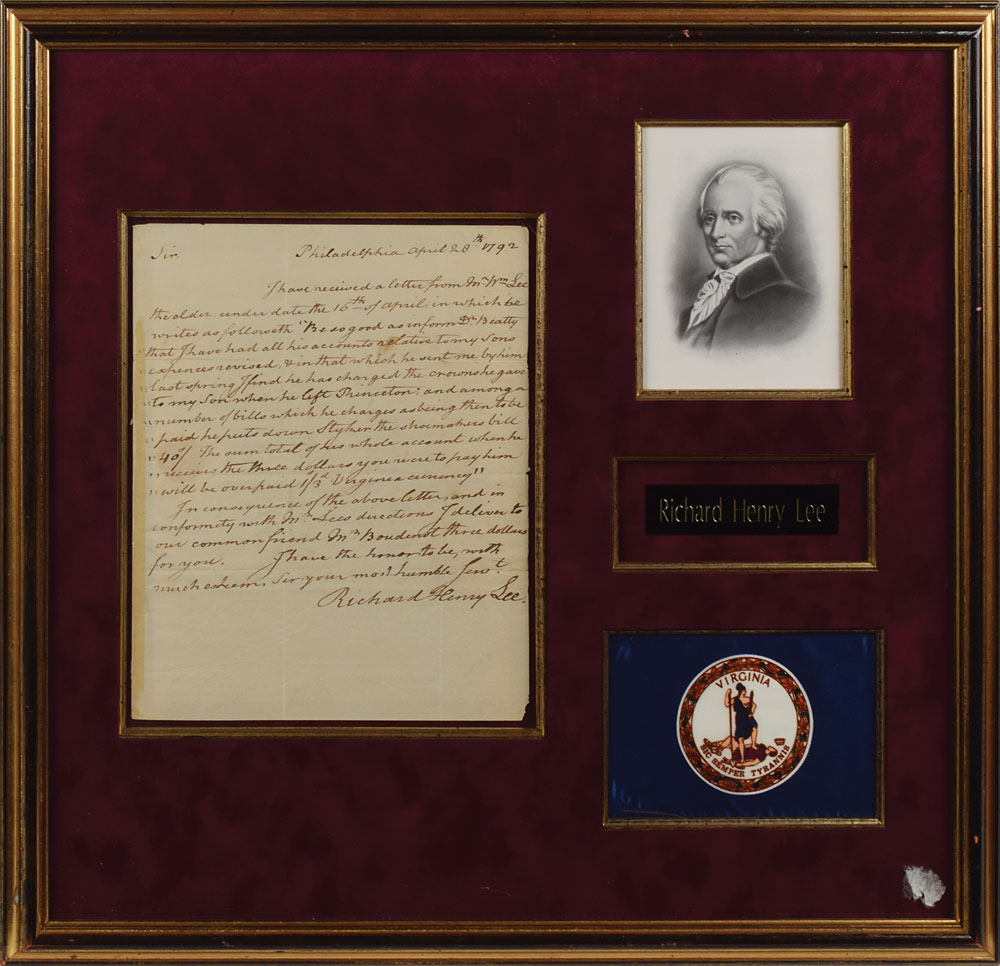 Sir, Philadelphia April 28th 1792
I have received a letter from Mr. Wm Lee
the elder, under date the 16th of April in which he
writes as followeth "Be so good as inform Dr. Beatty
"that I have had all his accounts relative to my Sons
expences revised, & in that which he sent me by him
"last spring I find he has charged the crowns he gave
"to my Son when he left Princeton; and among a
"number of bills which he charges as being then to be
"paid he puts down Stryker the shoemakers bill
"40/ The sum total of his whole account when he
"receives the three dollars you were to pay him
"will be overpaid 1/3d Virginia currency"
In consequence of the above letter, and in
conformity with Mr. Lees directions I deliver to
our common friend Mr. Boudenot three dollars
for you. I have the honor to be, with
much esteem, Sir your most humble Servt.
Richard Henry Lee.
Richard Henry Lee
VIRGINIA
SIC SEMPER TYRANNIS